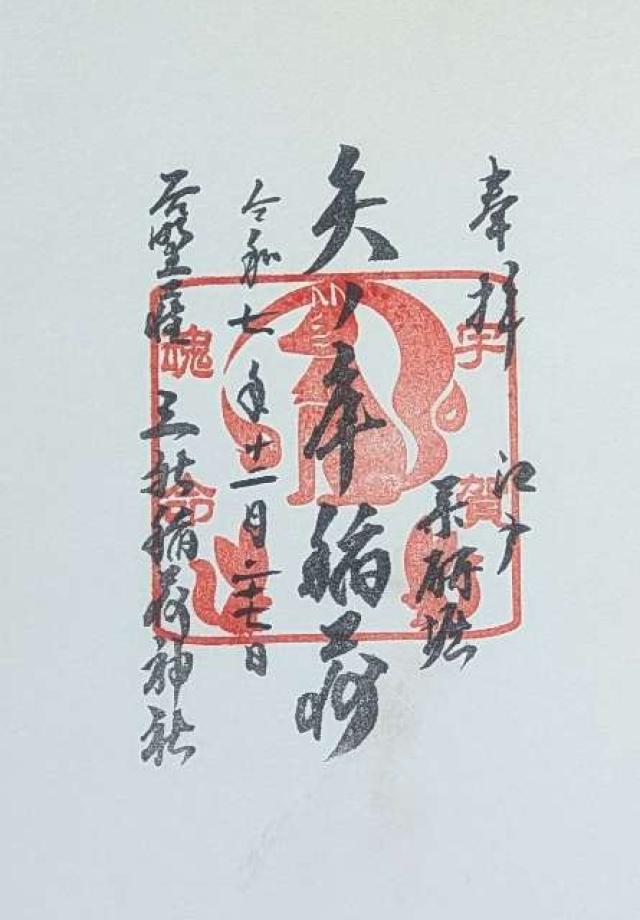 奉拝
江戸
薬研堀
矢ノ庫稲荷
令和七年十一月二十七日
三社稲荷神社
宇賀
魂命